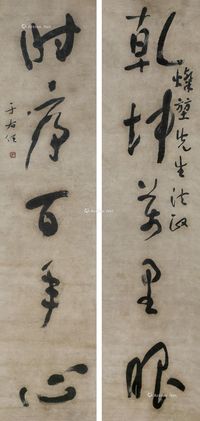 乾坤萬里眼
燦堃先生法政
时序百年心
于右任